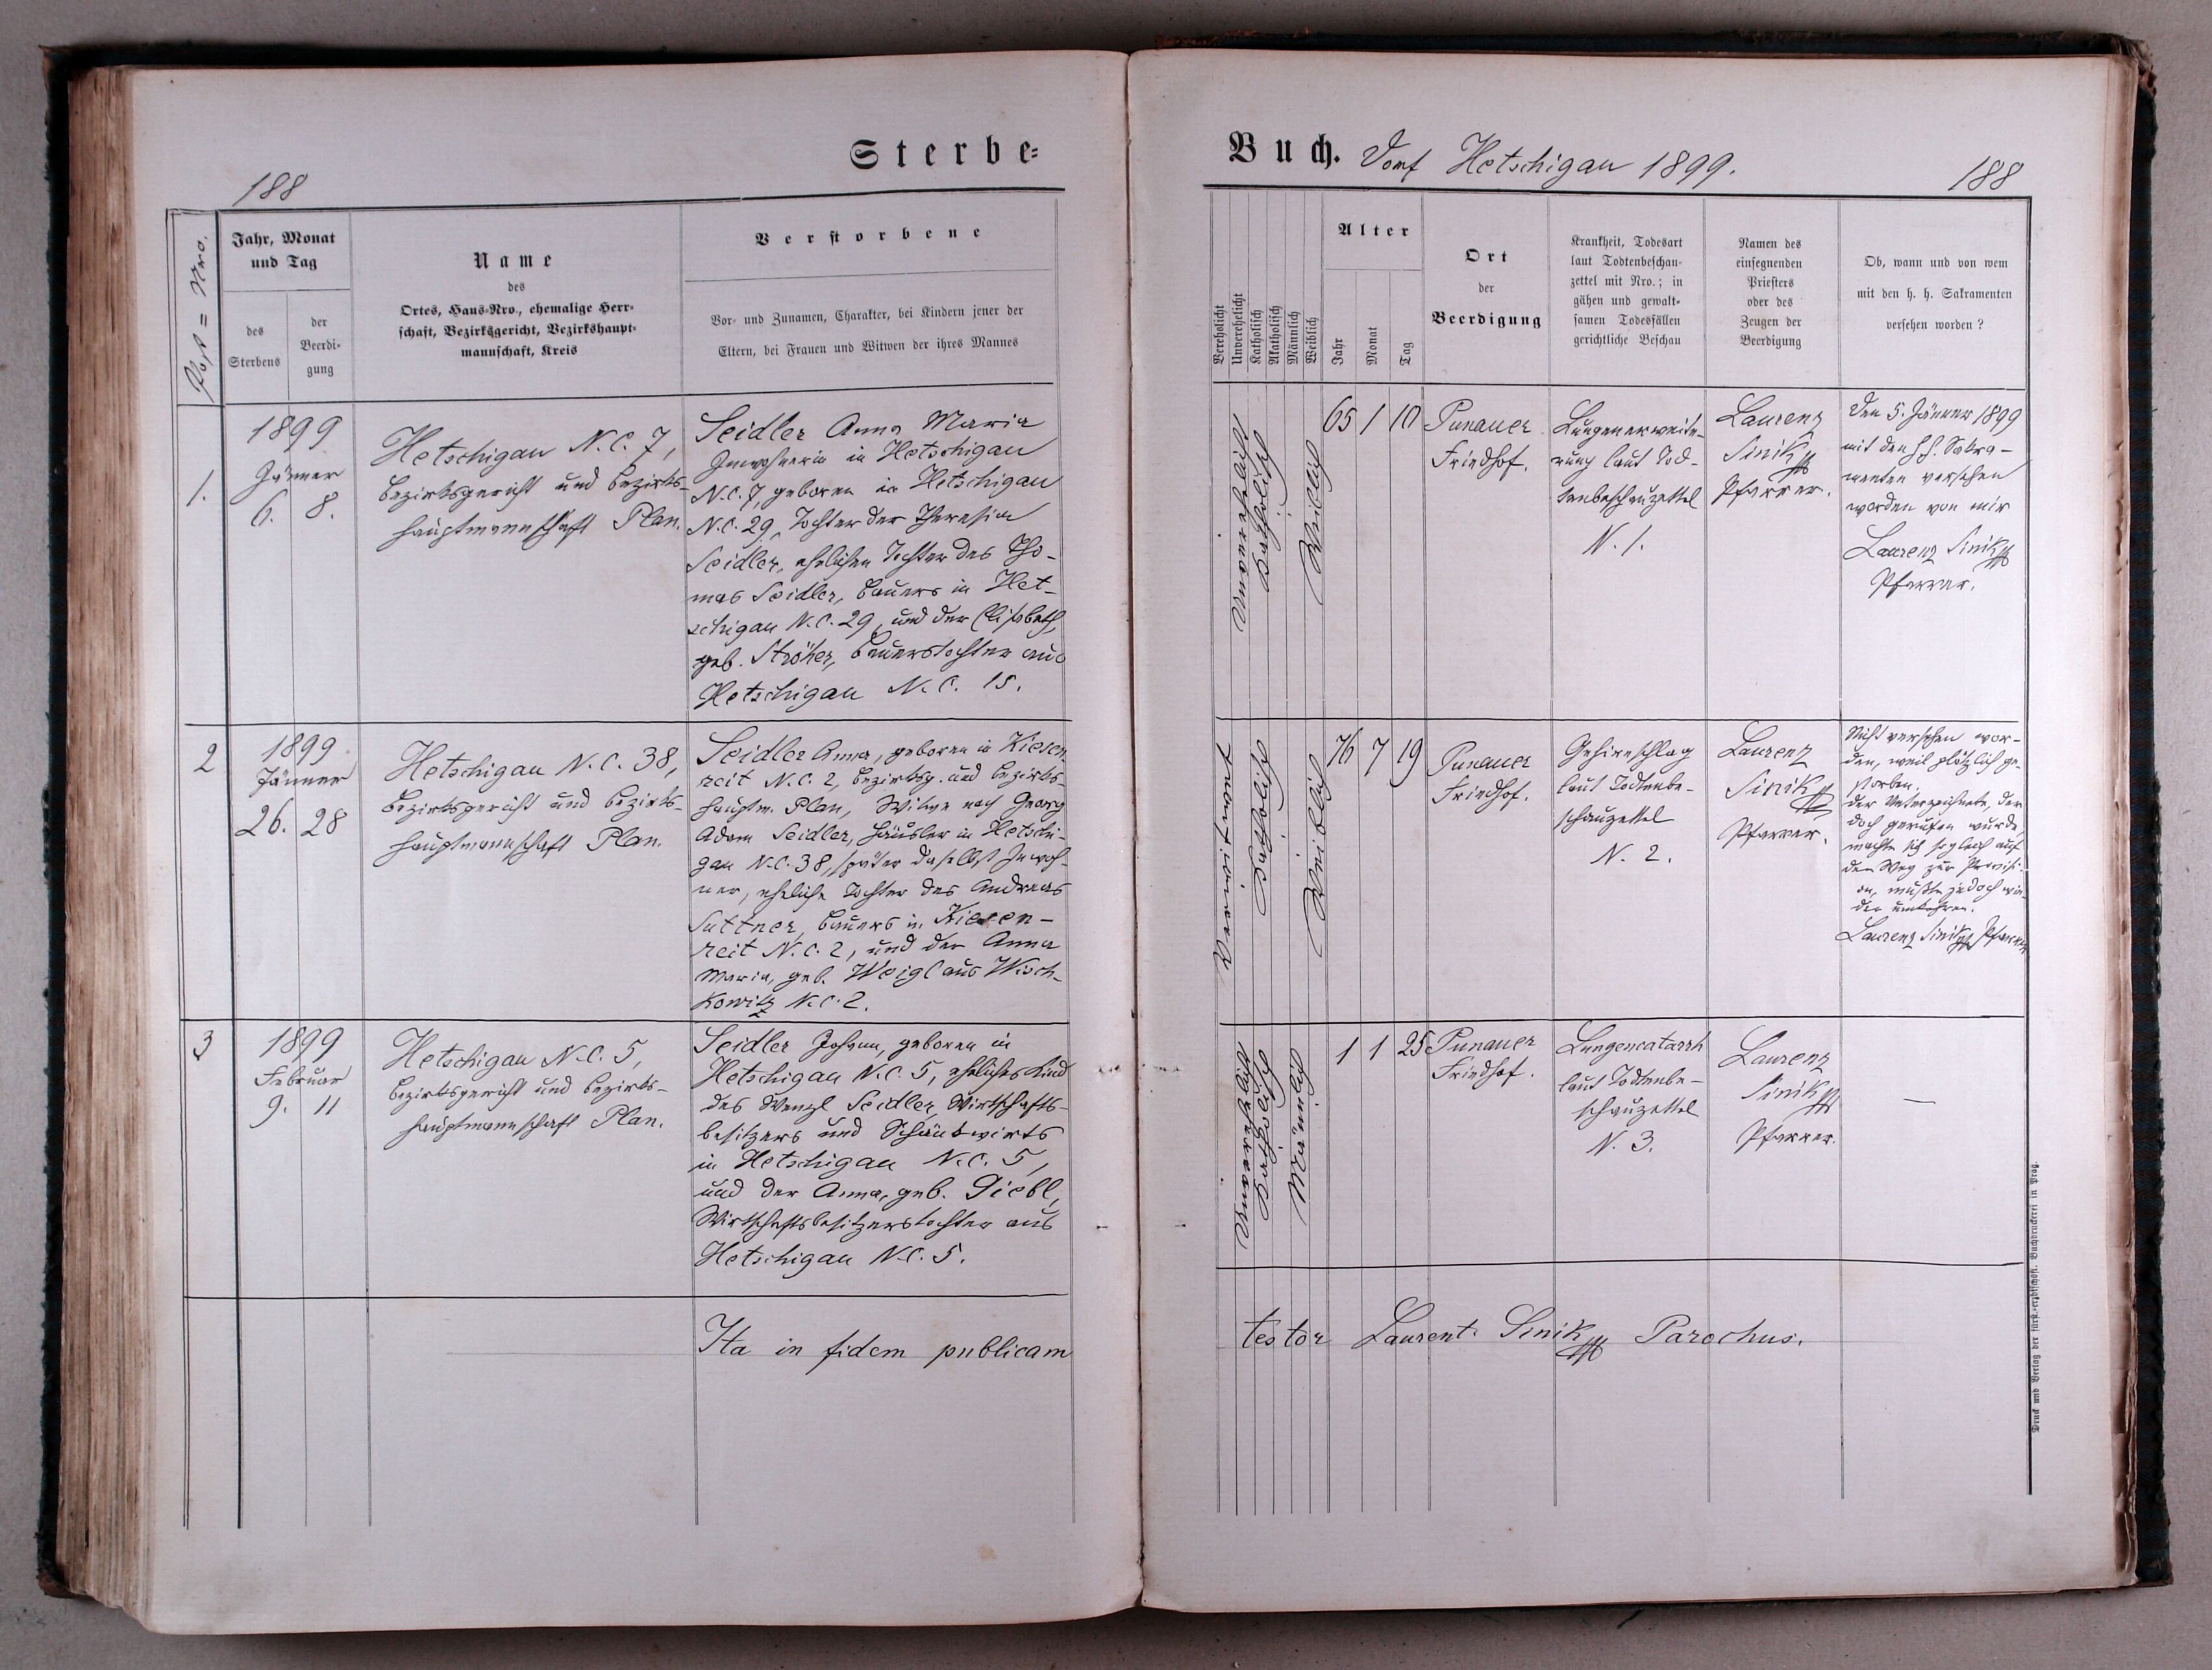 Sterbe-
188
Post = Nro.
Jahr, Monat
und Tag
des
Sterbens
der
Beerdi-
gung
Name
des
Ortes, Haus-Nro., ehemalige Herr-
schaft, Bezirksgericht, Bezirkshaupt-
mannschaft, Kreis
Verstorbene
Vor- und Zunamen, Charakter, bei Kindern jener der
Eltern, bei Frauen und Witwen der ihres Mannes
1.
1899
Jänner
6. 8.
Hetschigau N.C. 7,
Bezirksgericht und Bezirks-
hauptmannschaft Plan.
Seidler Anna Maria
Inwohnerin in Hetschigau
N.C. 7, geboren in Hetschigau
N.C. 29, Tochter der Theresia
Seidler, ehelichen Tochter des Tho-
mas Seidler, Bauers in Het-
schigau N.C. 29, und der Elisabeth,
geb. Ströher, Bauerstochter aus
Hetschigau N.C. 15.
2
1899
Jänner
26. 28
Hetschigau N.C. 38,
Bezirksgericht und Bezirks-
hauptmannschaft Plan.
Seidler Anna, geboren in Kiesen-
reit N.C. 2, Bezirksg. und Bezirks-
hauptm. Plan, Witwe nach Georg
Adam Seidler, Häusler in Hetschi-
gau N.C. 38, später daselbst Inwoh-
ner, eheliche Tochter des Andreas
Suttner, Bauers in Kiesen-
reit N.C. 2, und der Anna
Maria, geb. Weigl aus Wisch-
kowitz N.C. 2.
3
1899
Februar
9. 11
Hetschigau N.C. 5,
Bezirksgericht und Bezirks-
hauptmannschaft Plan.
Seidler Johann, geboren in
Hetschigau N.C. 5, eheliches Kind
des Wenzl Seidler, Wirtschafts-
besitzers und Schänkwirts
in Hetschigau N.C. 5,
und der Anna, geb. Diebl,
Wirtschaftsbesitzerstochter aus
Hetschigau N.C. 5.
Ita in fidem publicam
Buch. Dorf Hetschigau 1899.
188
Verehelicht
Unverehelicht
Katholisch
Akatholisch
Männlich
Weiblich
Alter
Jahr
Monat
Tag
Ort
der
Beerdigung
Krankheit, Todesart
laut Todtenbeschau-
zettel mit Nro.; in
gähen und gewalt-
samen Todesfällen
gerichtliche Beschau
Namen des
einsegnenden
Priesters
oder des
Zeugen der
Beerdigung
Ob, wann und von wem
mit den h. h. Sakramenten
versehen worden?
Unverehelicht
Katholisch
Weiblich
65 1 10
Punauer
Friedhof.
Lungenerweite-
rung laut Tod-
tenbeschauzettel
N. 1.
Laurenz
Sinik
Pfarrer.
Den 5. Jänner 1899
mit den hh. Sakra-
menten versehen
worden von mir
Laurenz Sinik
Pfarrer.
Verwitwet
Katholisch
Weiblich
76 7 19
Punauer
Friedhof.
Gehirnschlag
laut Todtenbe-
schauzettel
N. 2.
Laurenz
Sinik
Pfarrer.
Nicht versehen wor-
den, weil plötzlich ge-
storben.
der Unterzeichnete, der
doch gerufen wurde,
machte sich sogleich auf
den Weg zur Provisi-
on, mußte jedoch wie-
der umkehren.
Laurenz Sinik Pfarrer
Unverehelicht
Katholisch
Männlich
1 1 25
Punauer
Friedhof.
Lungencatarrh
laut Todtenbe-
schauzettel
N. 3.
Laurenz
Sinik
Pfarrer.
—
testor Laurent. Sinik Parochus.
Druck und Verlag der fürst.-erzbischöfl. Buchdruckerei in Prag.